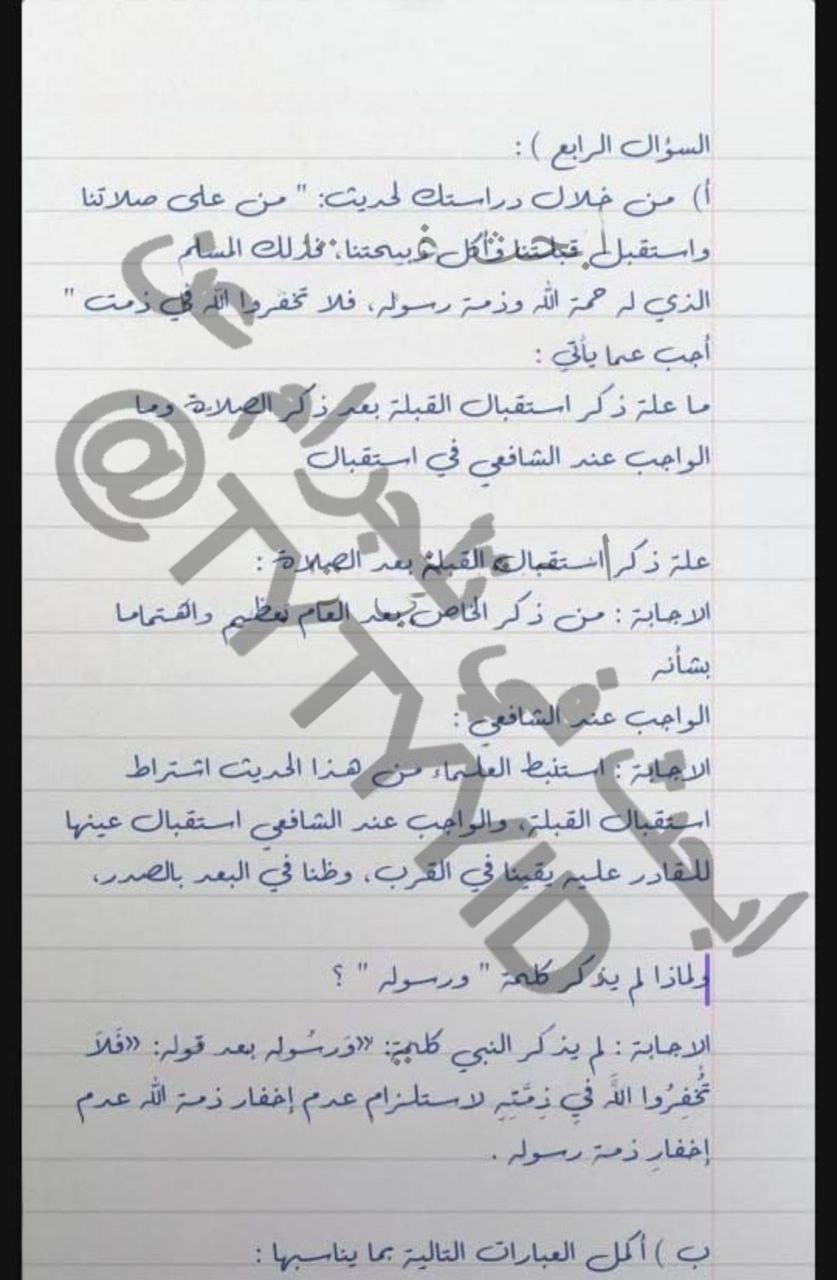 السؤال الرابع ) :
أ) من خلال دراستك لحديث: " من على صلاتنا
واستقبل قبلتنا وأكل ذبيحتنا، فذلك المسلم
الذي له حمة الله وذمة رسوله، فلا تخفروا الله في ذمت "
أجب عما يأتي :
ما علة ذكر استقبال القبلة بعد ذكر الصلاة وما
الواجب عند الشافعي في استقبال
علة ذكر استقبال القبلة بعد الصلاة :
الاجابة : من ذكر الخاص بعد العام تعظيم واهتماما
بشأنه
الواجب عند الشافعي :
الاجابة : استنبط العلماء من هذا الحديث اشتراط
استقبال القبلة، والواجب عند الشافعي استقبال عينها
للقادر عليه يقينا في القرب، وظنا في البعد بالصدر،
ولماذا لم يذكر كلمة " ورسوله " ؟
الاجابة : لم يذكر النبي كلمة: «وَرسُوله بعد قوله: «فَلاَ
تُخْفِرُوا اللَّهَ فِي ذِمَّتِهِ لاستلزام عدم إخفار ذمة الله عدم
إخفارِ ذمة رسوله .
ب ) أكمل العبارات التالية بما يناسبها :
ابحث في تيليجرام عن
@TYTYYID